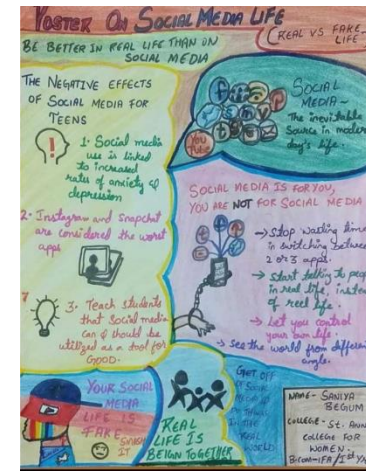 POSTER ON SOCIAL MEDIA LIFE
(REAL VS FAKE-
LIFE-
BE BETTER IN REAL LIFE THAN ON
SOCIAL MEDIA
THE NEGATIVE EFFECTS
OF SOCIAL MEDIA FOR
TEENS
1. Social media
use is linked
to increased
rates of anxiety &
depression
2. Instagram and Snapchat
are considered the worst
apps
3. Teach students
that social media
can & should be
utilized as a tool for
GOOD.
SOCIAL
MEDIA~
The inevitable
Source in modern
day's life.
You
Tube
SOCIAL MEDIA IS FOR YOU,
YOU ARE NOT FOR SOCIAL MEDIA
→ Stop wasting time
in switching between
2 or 3 apps.
→ Start talking to people
in real life, instead
of reel life.
→ Let you control
your own life.
→ See the world from different
angle.
YOUR SOCIAL
MEDIA
LIFE IS
FAKE
IT
REAL
LIFE IS
BEIGN TOGETHER
GET OFF
THE
REAL
WORLD
NAME- SANIYA
BEGUM
COLLEGE- ST. ANN
COLLEGE FOR
WOMEN-